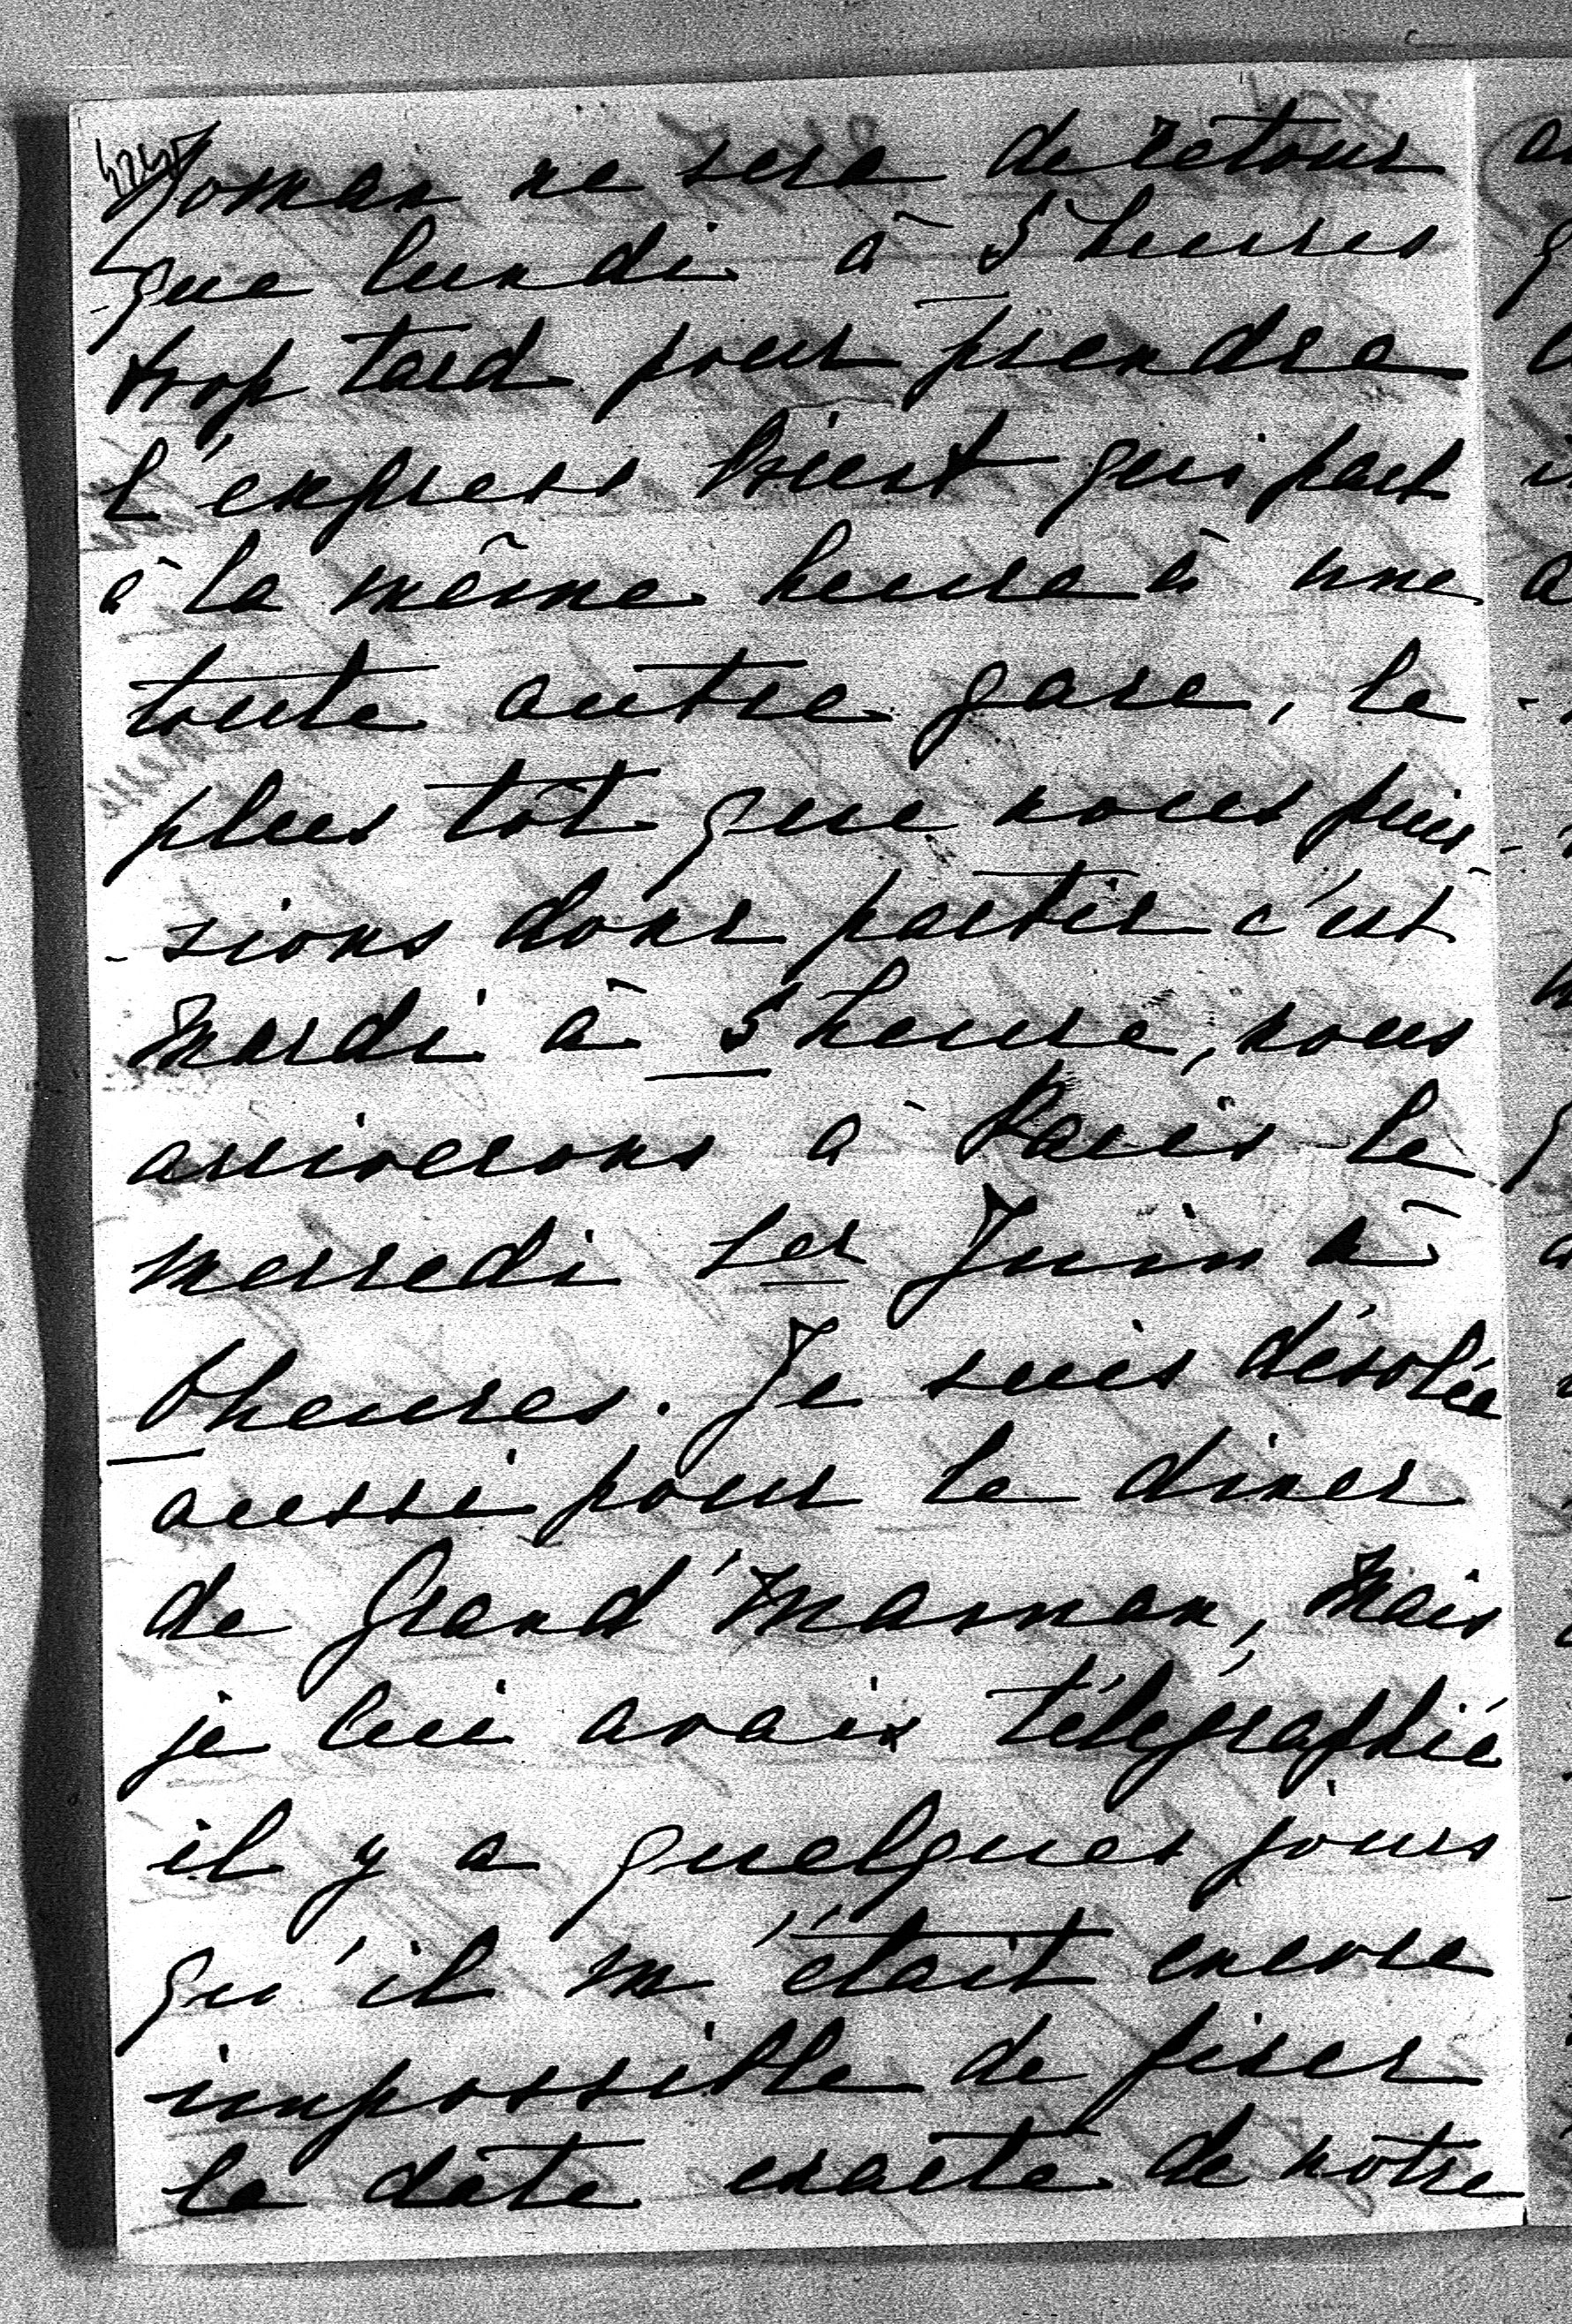 Roman ne sera de retour
que lundi à 5 heures
trop tard pour prendre
l'express Ouest qui part
à la même heure à une
toute autre gare, le
plus tôt que nous puis-
-sions donc partir c'est
Mardi à 5 heure, nous
arriverons à Paris le
mercredi 1er Juin à
6 heures. Je suis désolée
aussi pour le diner
de Grand'Maman, Mais
je lui avais télégraphié
il y a quelques jours
qu'il m'était encore
impossible de fixer
la date exacte de notre